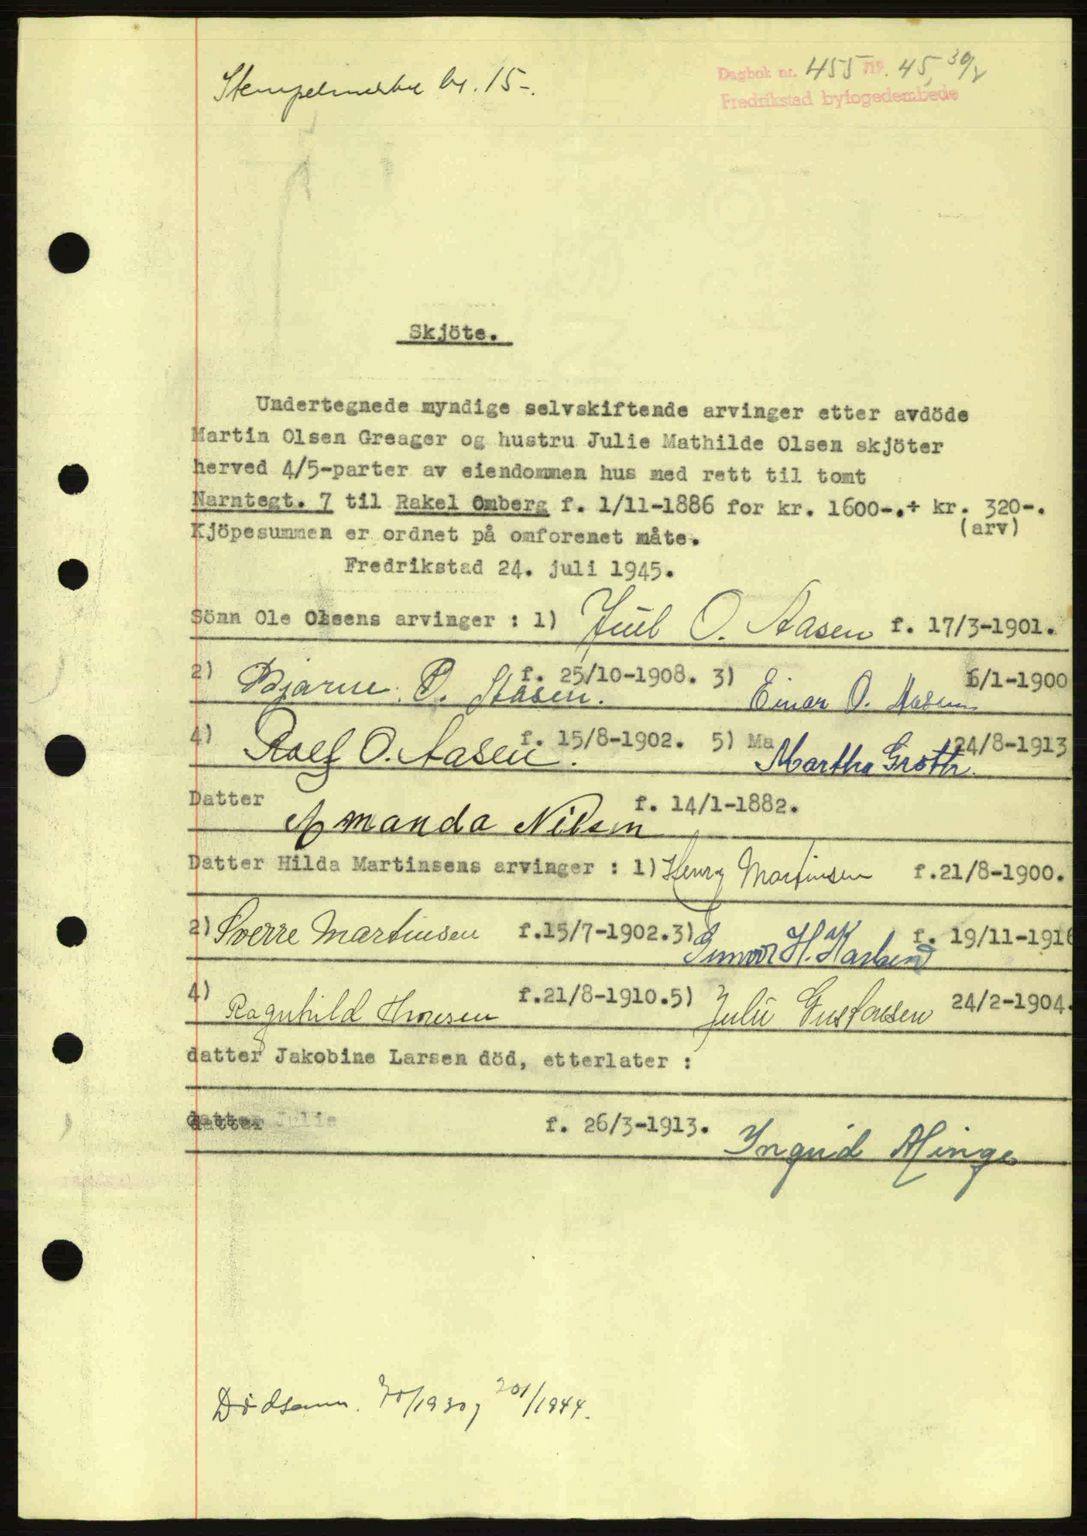 Stempelmerke kr. 15-.
Dagbok nr. 455 /19 45, 30/
Fredrikstad byfogedembede
Skjöte.
Undertegnede myndige selvskiftende arvinger etter avdöde
Martin Olsen Greager og hustru Julie Mathilde Olsen skjöter
herved 4/5-parter av eiendommen hus med rett til tomt
Narntegt. 7 til Rakel Omberg f. 1/11-1886 for kr. 1600-.+ kr. 320-.
(arv)
Kjöpesummen er ordnet på omforenet måte.
Fredrikstad 24. juli 1945.
Sönn Ole Olsens arvinger : 1) Juul O. Aasen f. 17/3-1901.
2) Bjarne. O. Aasen. f. 25/10-1908. 3) Einar O. Aasen 6/1-1900
4) Rolf O. Aasen. f. 15/8-1902. 5) Ma Martha Groth. 24/8-1913
Datter Amanda Nilsen f. 14/1-1882.
Datter Hilda Martinsens arvinger : 1) Henry Martinsen f.21/8-1900.
2) Sverre Martinsen f.15/7-1902.3) Gunvor H. Karlsen f. 19/11-1916
4) Ragnhild Thoresen f.21/8-1910.5) Julie Gustavsen 24/2-1904.
datter Jakobine Larsen död, etterlater :
datter Julie f. 26/3-1913. Ingrid Minge
Dödsann. /1930, /1944.